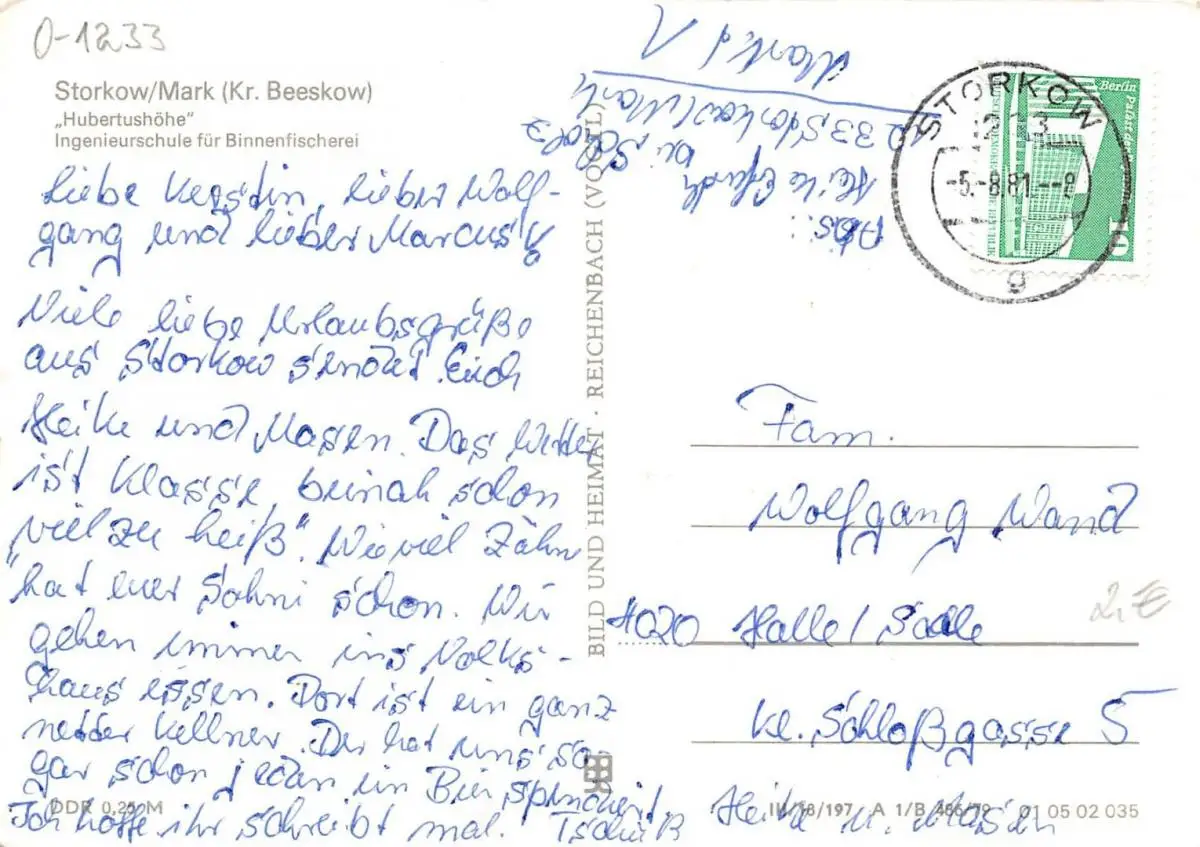 0-1233
Storkow/Mark (Kr. Beeskow)
„Hubertushöhe"
Ingenieurschule für Binnenfischerei
Liebe Kerstin, lieber Wolf-
gang und lieber Marcus!
Viele liebe Urlaubsgrüße
aus Storkow sendet Euch
Heike und Masen. Das Wetter
ist Klasse, beinah schon
"viel zu heiß". Wie viel Zähn
hat euer Sohni schon. Wir
gehen immer ins Volks-
haus essen. Dort ist ein ganz
netter Kellner. Der hat uns so
gar schon jeden ein Bier spendiert
Ich hoffe ihr schreibt mal. Tschüß Heike u. Masen
DDR 0,25 M
BILD UND HEIMAT · REICHENBACH (VOGTL)
Abs.:
Heike
bei Scholz
1233 Storkow/Mark
Markt 1
STORKOW
1233
-5.-8.81--8
g
Berlin Palast der
DEUTSCHE DEMOKRATISCHE REPUBLIK
10
Fam.
Wolfgang Wand
4020 Halle/Saale
Kl. Schloßgasse 5
2,- €
III/18/197 A 1/B 486/79 01 05 02 035